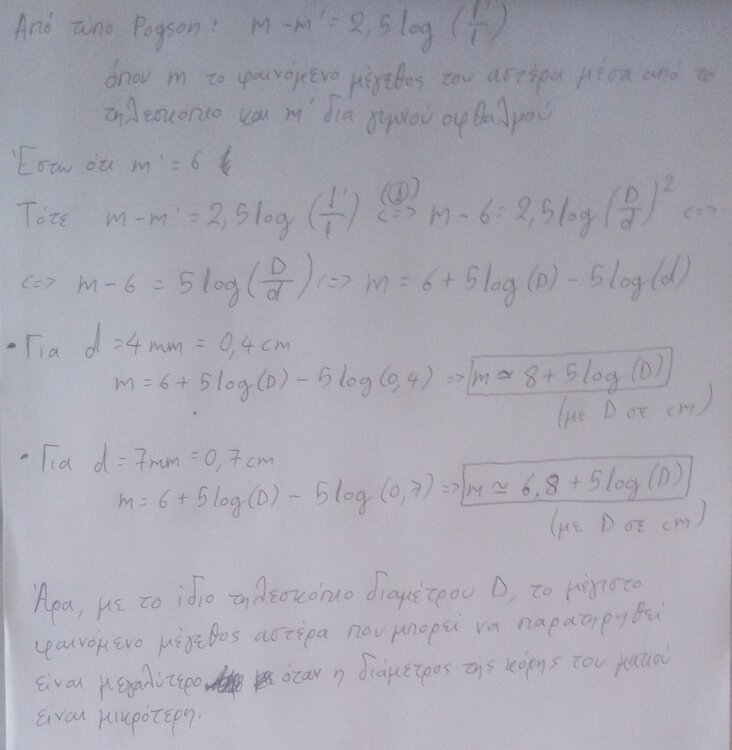 Από τύπο Pogson: m-m' = 2,5 log (l'/l)
όπου m το φαινόμενο μέγεθος του αστέρα μέσα από το
τηλεσκόπιο και m' δια γυμνού οφθαλμού
Έστω ότι m' = 6
Τότε m-m' = 2,5 log (l'/l) <=>(1) m-6 = 2,5 log (D/d)² <=>
<=> m-6 = 5 log (D/d) <=> m = 6+5 log (D) - 5 log (d)
• Για d = 4 mm = 0,4 cm
m = 6+5 log (D) - 5 log (0,4) => m ≃ 8+5 log (D)
(με D σε cm)
• Για d = 7 mm = 0,7 cm
m = 6+5 log (D) - 5 log (0,7) => m ≃ 6,8 +5 log (D)
(με D σε cm)
Άρα, με το ίδιο τηλεσκόπιο διαμέτρου D, το μέγιστο
φαινόμενο μέγεθος αστέρα που μπορεί να παρατηρηθεί
είναι μεγαλύτερο όταν η διάμετρος της κόρης του ματιού
είναι μικρότερη.